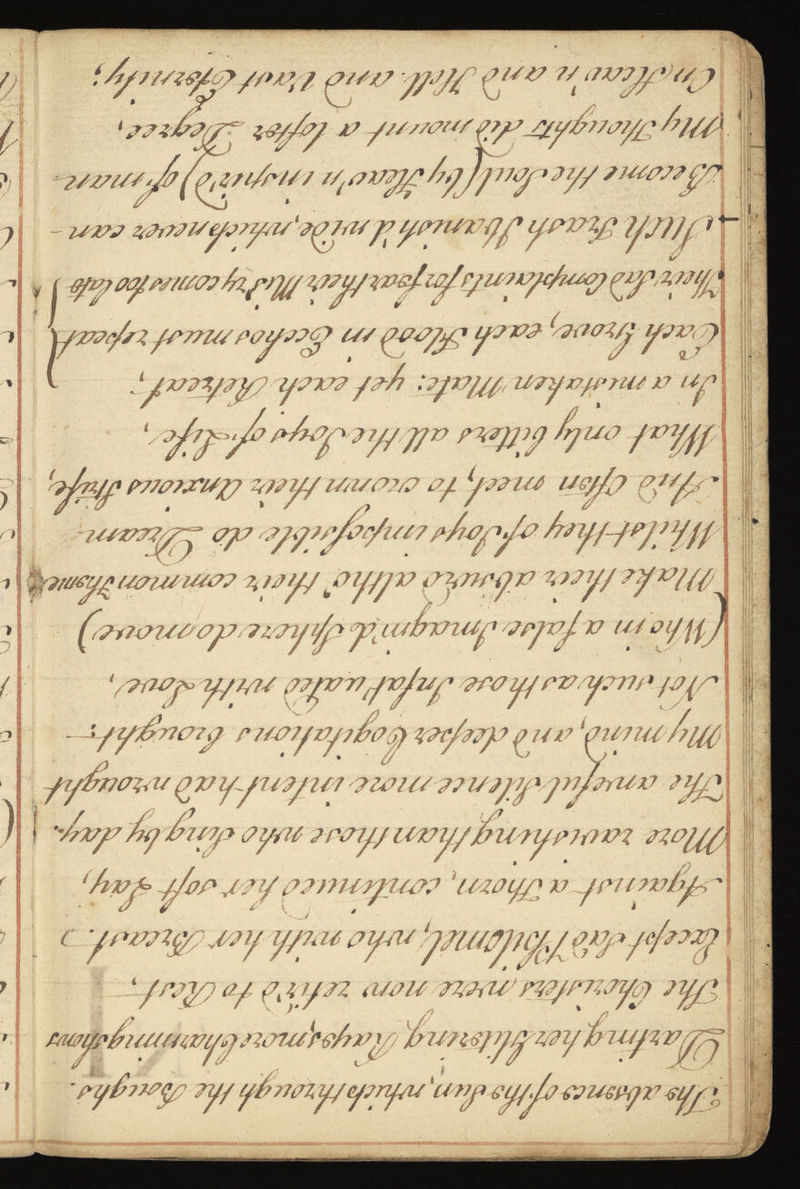 The absence of the Sun, which through the Boughs.
Darting her Glittering Rays, more Charming shows
The Choristers were now retir'd to Rest,
Except Sad Philomel, who with her Breast.
Against a Thorn, continued her soft Lay,
More ravishing than those who Sing by day.
The aweful Silence more intent had wrought
My mind, and deeper Cogitations brought:
Not such as those Infatuated with Love,
(Who in a false Imagin'd Sphere do move)
Make their absurd altho' their common Theme
Whilst they of Joys impossible do Dream
And Often meet, to crown their Anxious Strife,
What only bitters all the Joys of Life,
In a mistaken Mate: yet each Retreat,
Each Grove, each Flood in Ecchos must repeat
Their Sad Complaints for fear their Mis'ry comes too late
Such Trash I banish'd wide, which never can
Become the Soul (by Heav'n inspir'd) of man
My Thoughts did mount a lofter Degree,
On Heav'n and Hell and Vast Eternity;